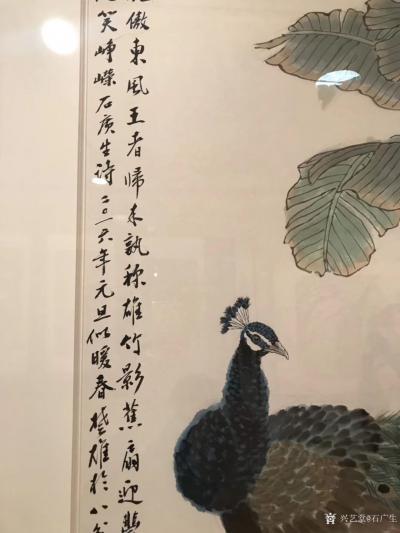 傲東風王者歸来孰称雄竹影蕉扇迎
笑峥嵘石廣生诗二〇一六年元旦似暖春楚雄於八
兴艺堂@石广生